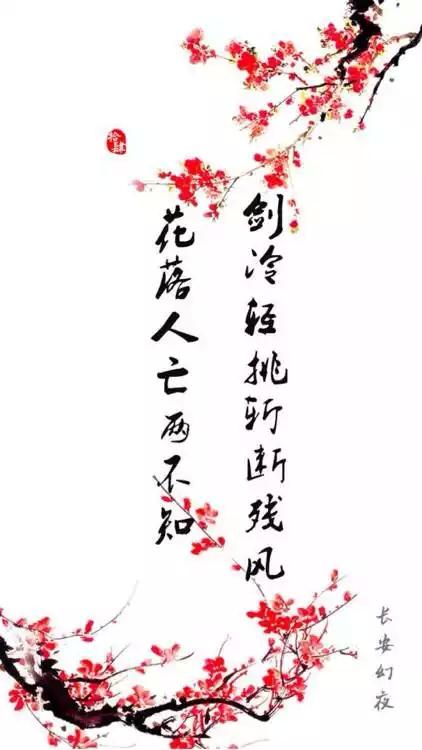 剑冷轻挑斩断残风
花落人亡两不知
拾肆
长安幻夜